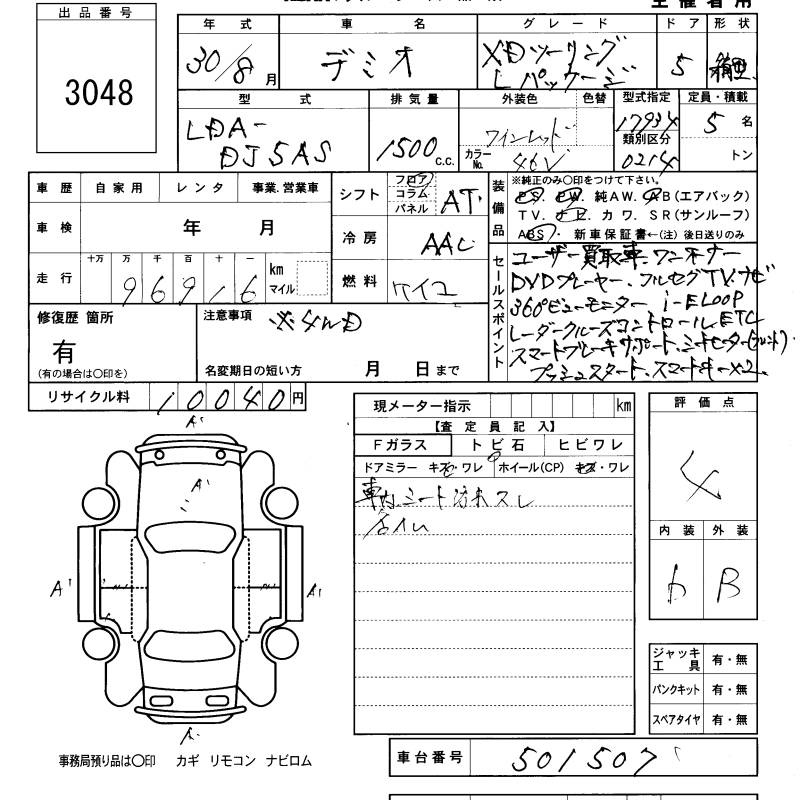 出品番号
3048
年式 車名 グレード ドア 形状
30/8月 デミオ XDツーリング Lパッケージ 5 箱型
型式 排気量 外装色 色替 型式指定 定員・積載
LDA-
DJ5AS 1500 C.C. ワインレッド 17934 5名
類別区分
カラーNo. 46V 0214 トン
車歴 自家用 レンタ 事業.営業車
シフト フロア コラム パネル AT
装備品
※純正のみ〇印をつけて下さい。
PS. PW. 純AW. AB(エアバック)
TV. ナビ. カワ. SR(サンルーフ)
ABS. 新車保証書←(注) 後日送りのみ
車検 年 月
冷房 AAC
走行 十万 万 千 百 十 一
96916 km マイル
燃料 ケイユ
セールスポイント
ユーザー買取車.ワンオーナー
DVDプレーヤー.フルセグTV.ナビ
360°ビューモニター i-ELOOP
レーダークルーズコントロール.ETC
スマートブレーキサポート.シートヒーター(フロント)
プッシュスタート.スマートキー×2.
修復歴 箇所
有
(有の場合は〇印を)
注意事項 ※4WD
名変期日の短い方 月 日まで
リサイクル料 10040円
現メーター指示 km
【査定員記入】
Fガラス トビ石 ヒビワレ
ドアミラー キズ・ワレ ホイール(CP) キズ・ワレ
車内シート
スレ
評価点
4
内装 外装
B
A'
A'
A'
A'
ジャッキ
工具 有・無
パンクキット 有・無
スペアタイヤ 有・無
事務局預り品は〇印 カギ リモコン ナビロム
車台番号 501507